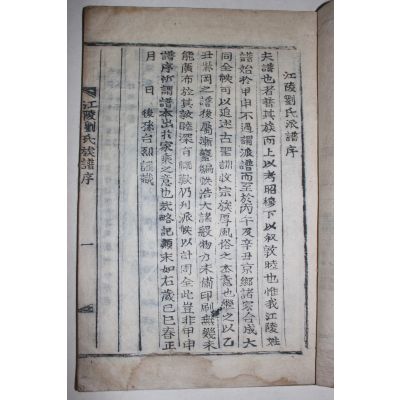 江陵劉氏派譜序
夫譜也者譜其族而上以考昭穆下以叙敦睦也惟我江陵姓
譜始於甲申不過謂派譜而至於丙午及辛丑京鄕諸家合成大
同全帙可以追述古聖訓收宗族厚風俗之本意也繼之以乙
丑 岡之譜後屬漸繁編帙浩大諸般物力未備印刷無幾未
能廣布於其敦睦深有慨歎仍列派候以計周全此豈非甲申
譜序所謂譜本出於家乘之意也哉略記顚末如右歲己巳春正
月 日 後孫 烈謹識
江陵劉氏族譜序 一